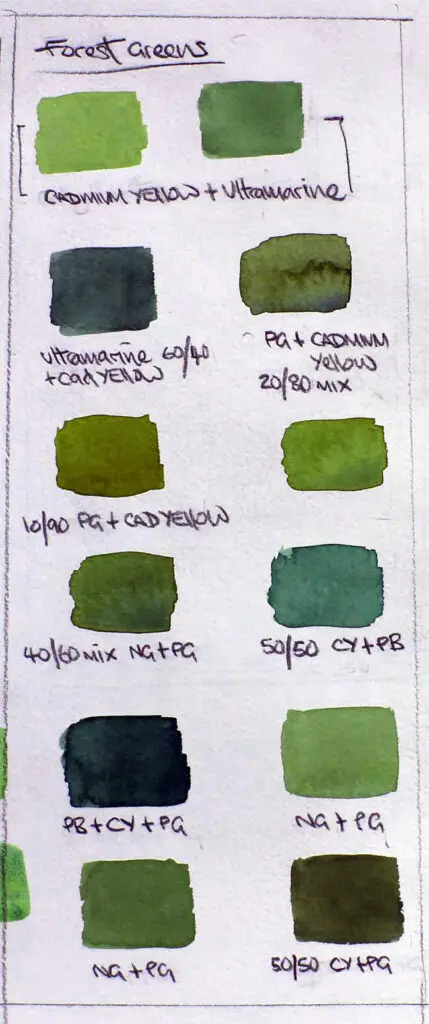 Forest Greens
CADMIUM YELLOW + Ultramarine
Ultramarine 60/40
+ Cad YELLOW
PG + CADMIUM
Yellow
20/80 MIX
10/90 PG + CAD YELLOW
40/60 mix NG + PG
50/50 CY + PB
PB + CY + PG
NG + PG
NG + PG
50/50 CY + PG